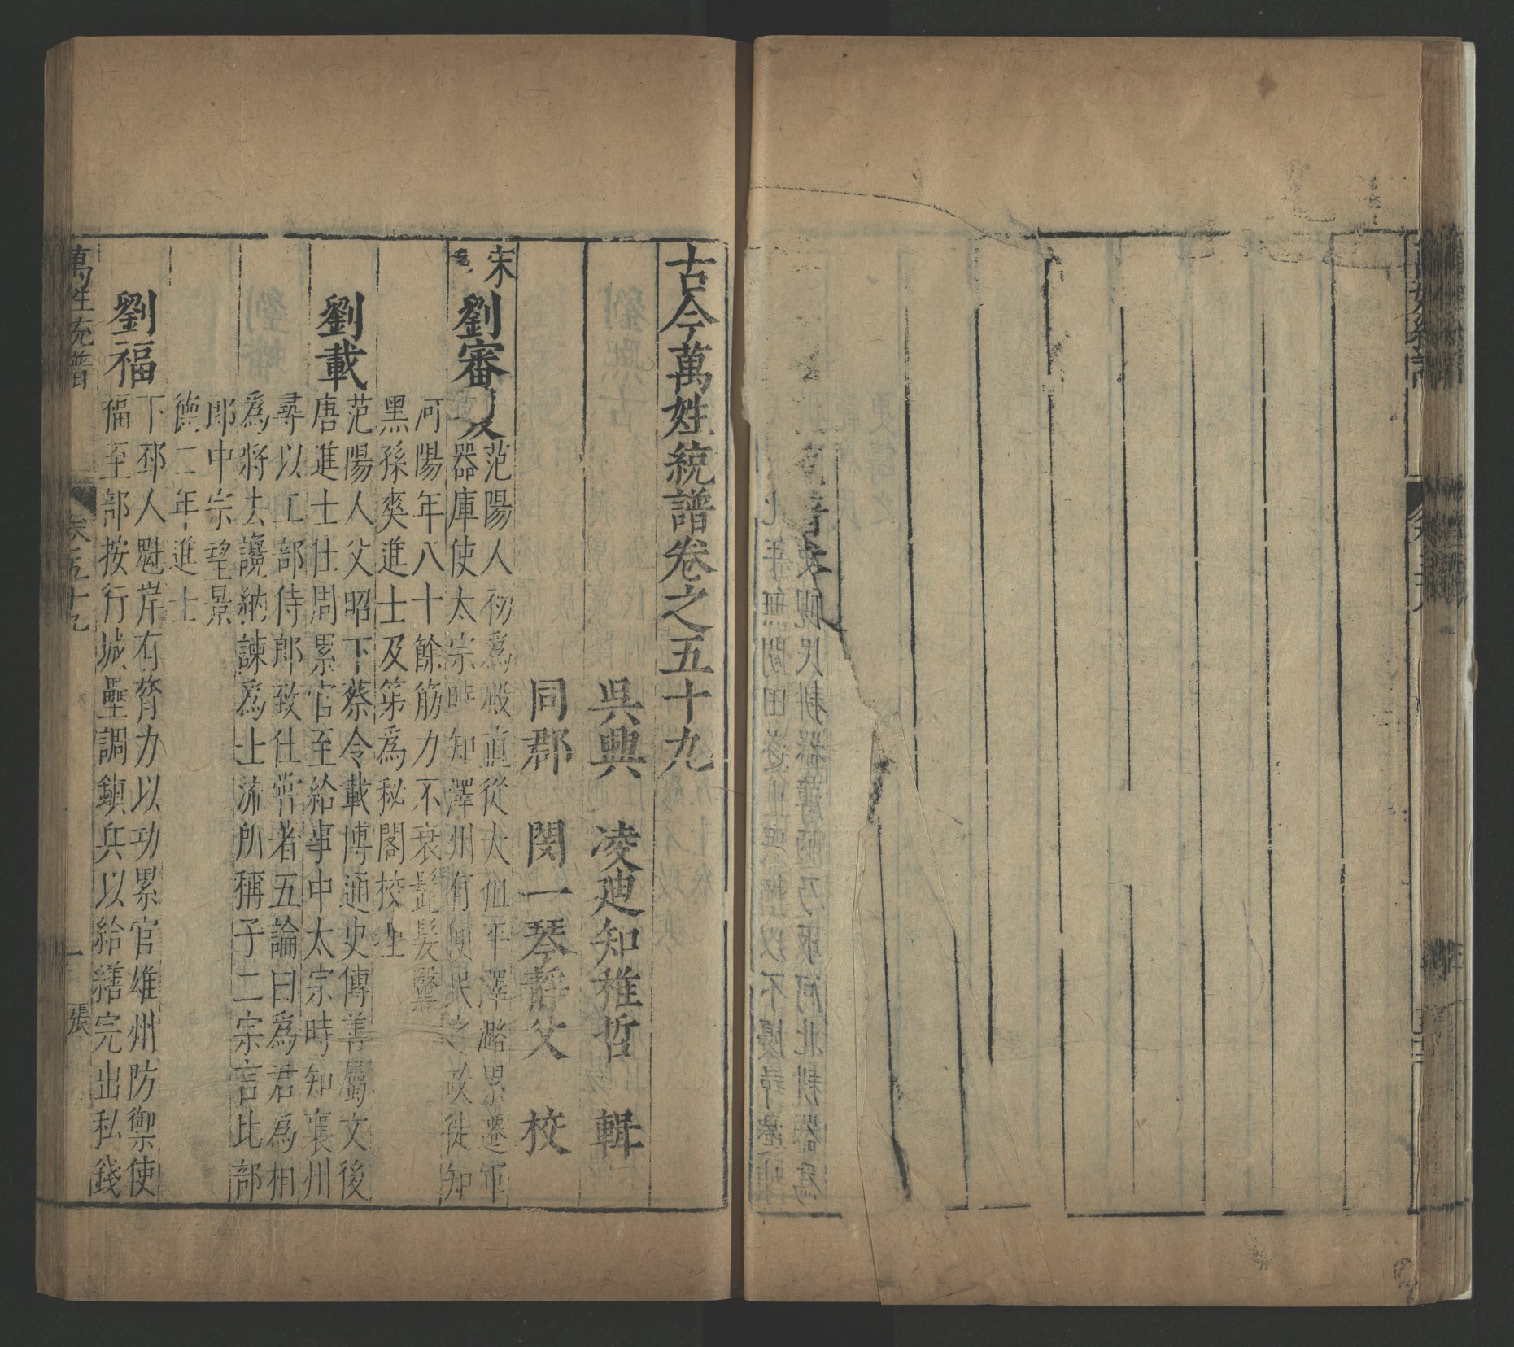 古今萬姓統譜卷之五十九
吳興 凌迪知稚哲 輯
同郡 閔一琴靜父 校
宋
劉審
范陽人初為殿直從太祖平澤潞累遷軍
器庫使太宗時知澤州有便民之政徙知
河陽年八十餘筋力不衰髭髮黳
黑孫奭進士及第為秘閣校理
劉載
范陽人父昭下蔡令載博通史傳善屬文後
唐進士仕周累官至給事中太宗時知襄州
尋以工部侍郎致仕嘗著五論曰為君為相
為將去讒納諫為士流所稱子二宗言比部
郎中宗望景
德二年進士
劉福
下邳人魁岸有膂力以功累官雄州防禦使
福至部按行城壘調鎮兵以給繕完出私錢
萬姓統譜
卷五十九
一
張